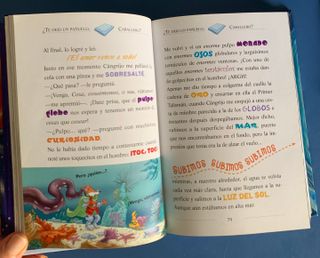 ¿TE CREO UN PAPALEO, CABALLERO?
Al final, lo logré y leí:
¡El amor vence a todo!
Justo en ese momento Cangrijo me pellizcó la
cola con una pinza y me SOBRESALTÉ.
—¿Qué pasa? —le pregunté.
—¡Venga, Cosa, ehmmmmmm, o sea, ratoncete
—me apremió—. ¡Date prisa, que el pulpo
globo nos espera y tenemos un montón de
veces que contar!
—¿Pulpo... qué? —pregunté con muchísima
CURIOSIDAD.
No le había dado tiempo a contestarme cuando
noté unos toquecitos en el hombro: ¡TOC, TOC!
Pero ¿quién...?
¿TE CREO UN PAPALEO, CABALLERO?
Me volví y vi un enorme pulpo MORADO
con enormes OJOS azules y larguísimos
tentáculos de enormes ventosas. ¡Con uno de
aquellos enormes tentáculos me estaba dan-
do golpecitos en el hombro! ¡ARGH!
Apenas me dio tiempo a colgarme del cuello la
cadena de ORO y ensartar en ella el Primer
Talismán, cuando Cangrijo me empujó a una ces-
ta de mimbre parecida a la de los GLOBOS y
instantes después despegábamos. Mejor dicho,
subíamos a la superficie del MAR, puesto
que nos encontrábamos en el fondo, pero la im-
presión que tenía era la de alzar el vuelo...
SUBIMOS SUBIMOS SUBIMOS
mientras, a nuestro alrededor, el agua se volvía
cada vez más clara, hasta que llegamos a la su-
perficie y salimos a la LUZ DEL SOL.
Aunque aún estábamos en alta mar